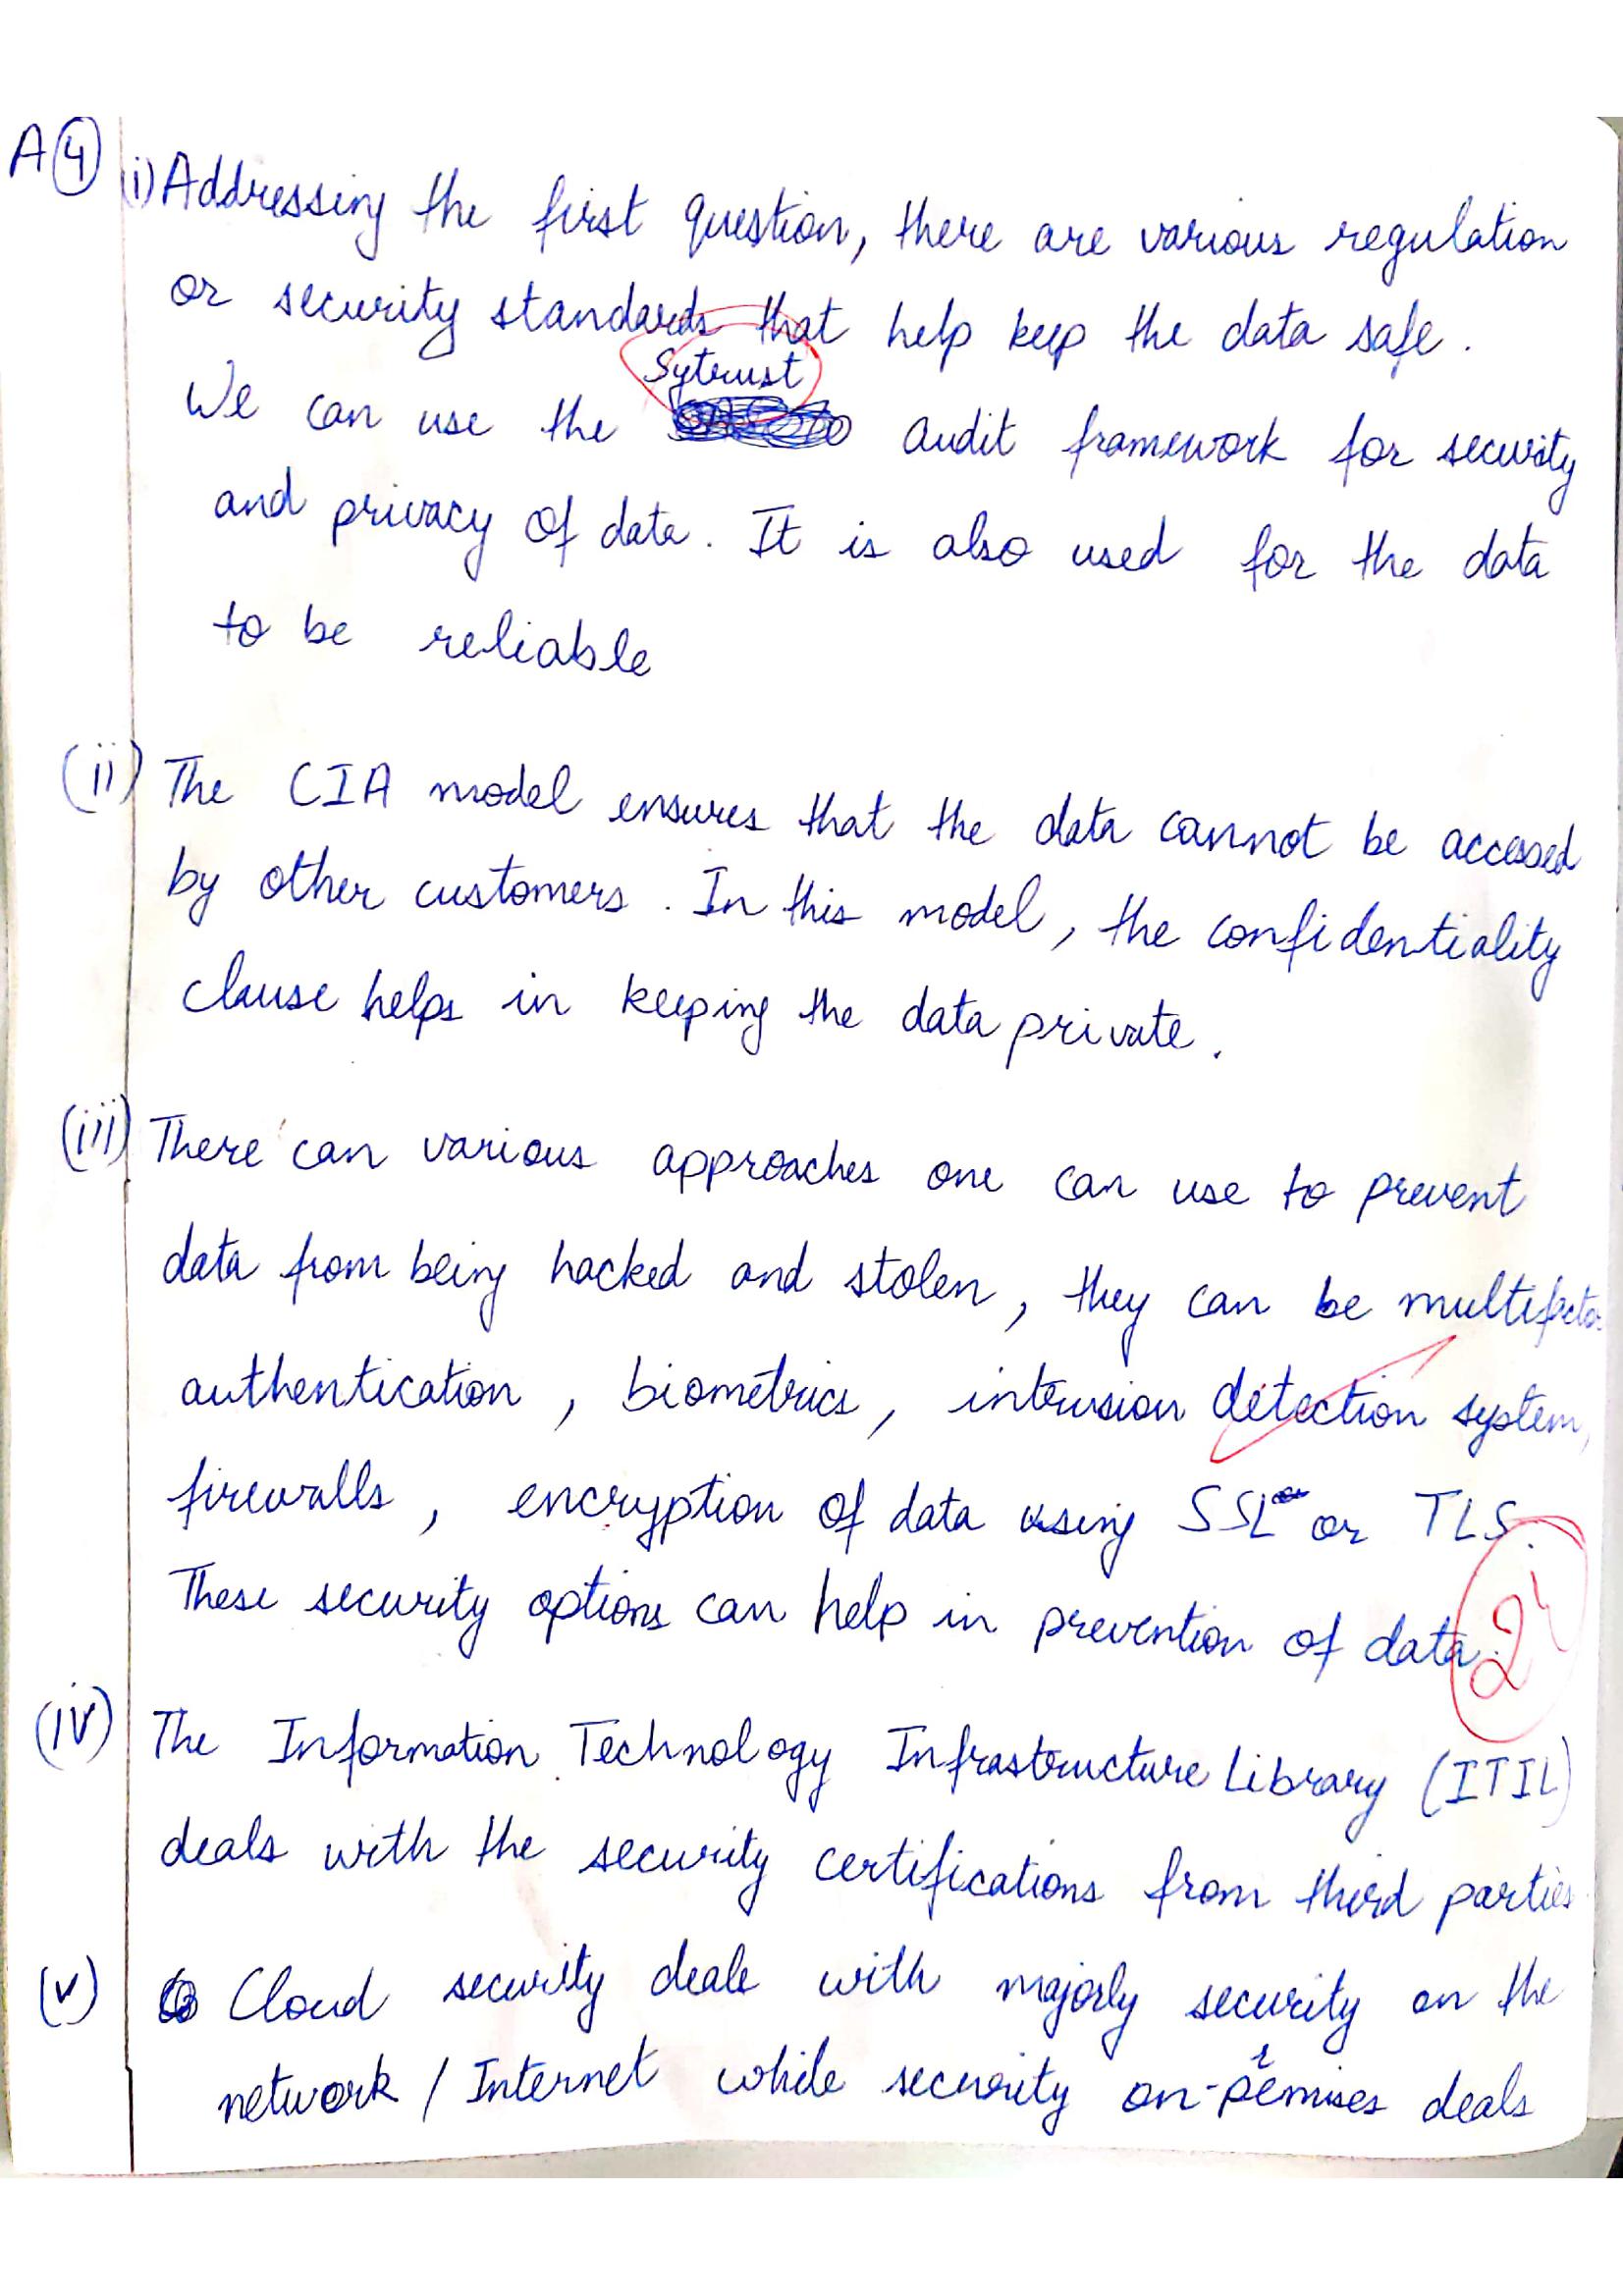 A4 (i) Addressing the first question, there are various regulation
or security standards that help keep the data safe.
Sytrust
We can use the audit framework for security
and privacy of data. It is also used for the data
to be reliable
(ii) The CIA model ensures that the data cannot be accessed
by other customers. In this model, the confidentiality
clause helps in keeping the data private.
(iii) There can various approaches one can use to prevent
data from being hacked and stolen, they can be multifactor
authentication, biometrics, intrusion detection system,
firewalls, encryption of data using SSL or TLS.
These security options can help in prevention of data.
2
(iv) The Information Technology Infrastructure Library (ITIL)
deals with the security certifications from third parties
(v) Cloud security deals with majorly security on the
network / Internet while security on-premises deals